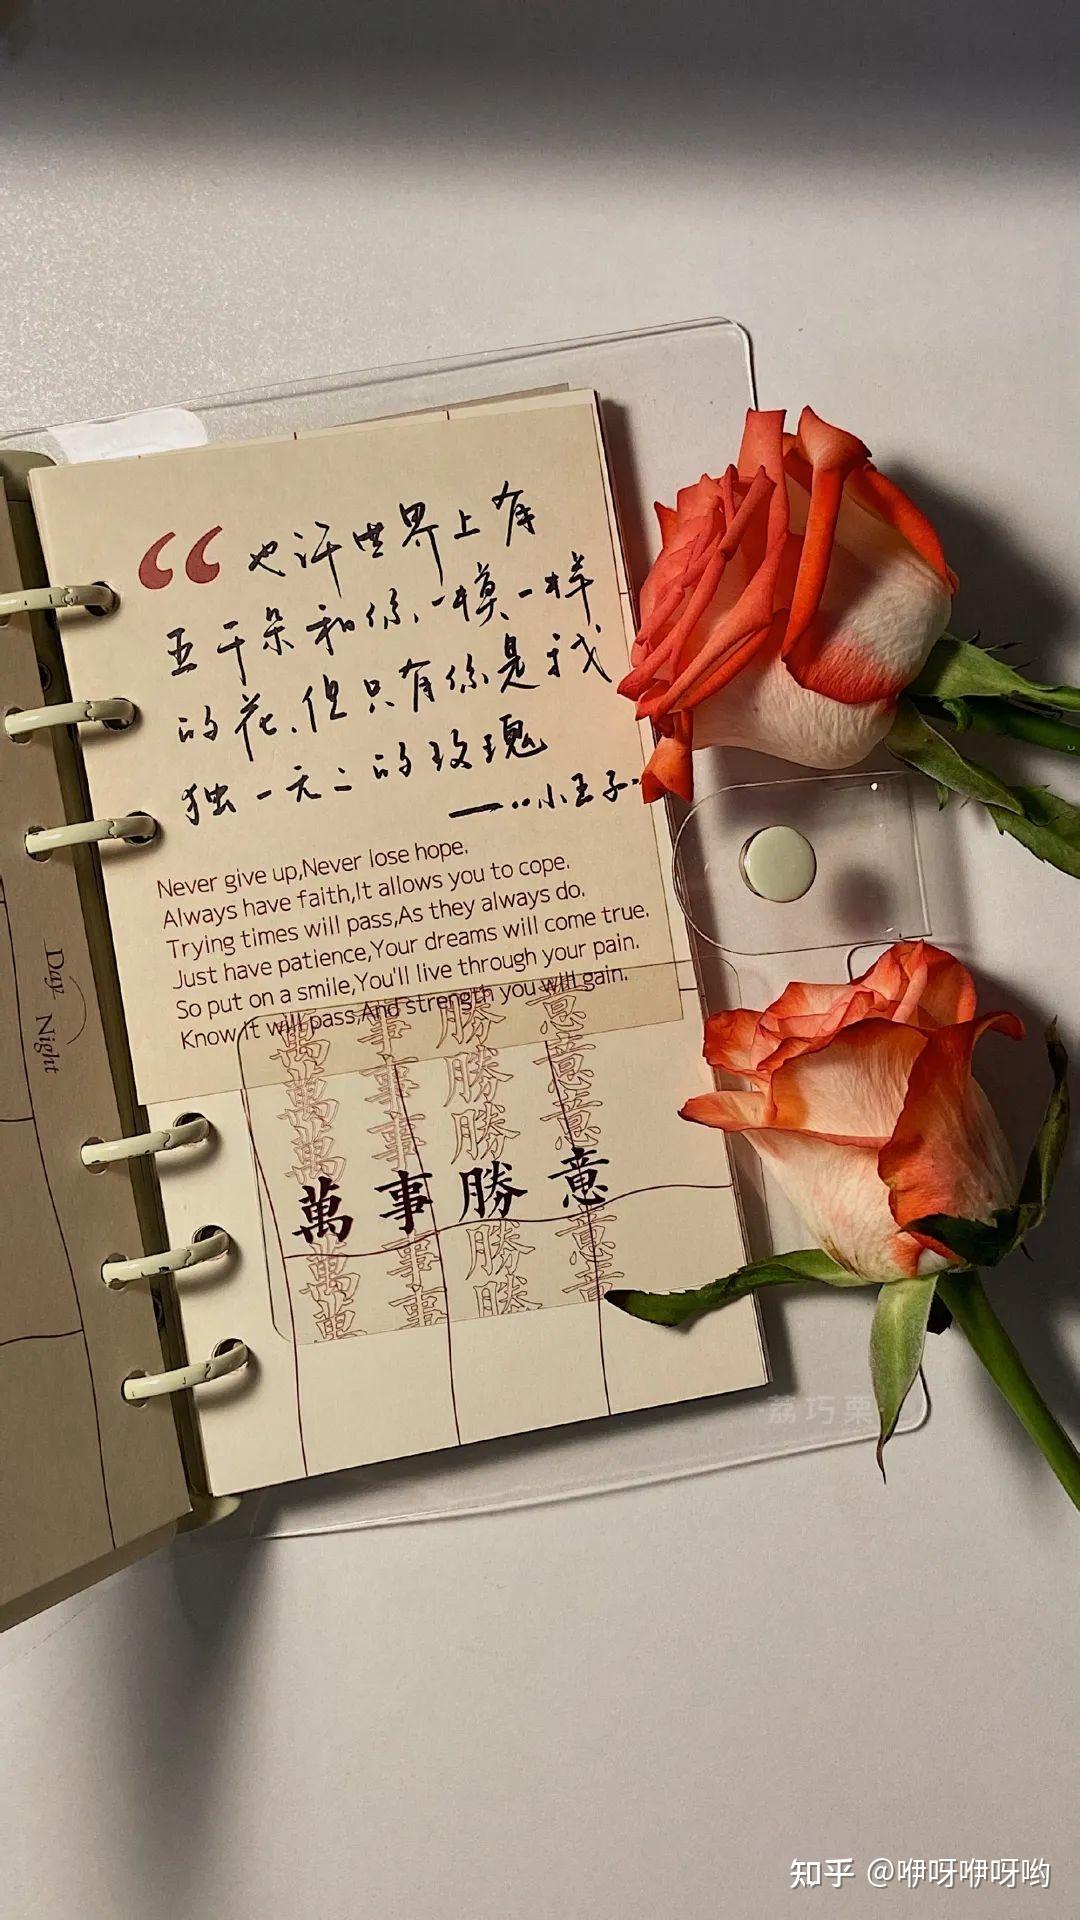 “
也许世界上有
五千朵和你一模一样
的花.但只有你是我
独一无二的玫瑰
——小王子
Never give up,Never lose hope.
Always have faith,It allows you to cope.
Trying times will pass,As they always do.
Just have patience,Your dreams will come true.
So put on a smile,You'll live through your pain.
Know it will pass,And strength you will gain.
萬 事 勝 意
萬 事 勝 意
萬 事 勝 意
萬 事 勝 意
萬 事 勝 意
萬 事 勝 意
Day
Night
荔巧栗
知乎 @咿呀咿呀哟